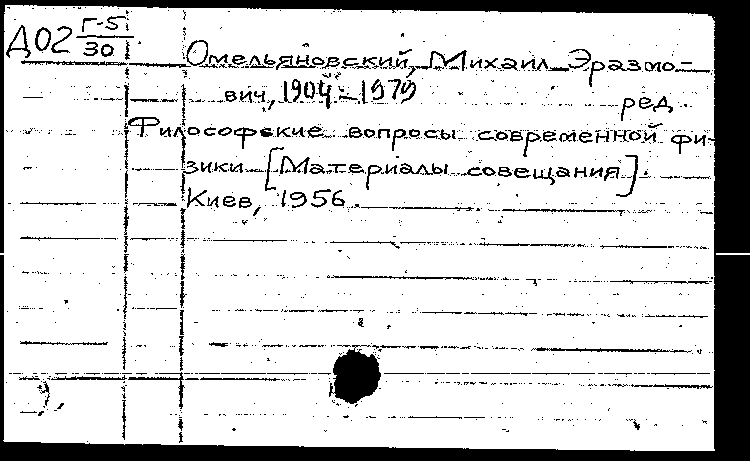 Д02 Г-5/30
Омельяновский, Михаил Эразмо-
вич, 1904-1979
ред.
Философские вопросы современной фи-
зики [Материалы совещания].
Киев, 1956.